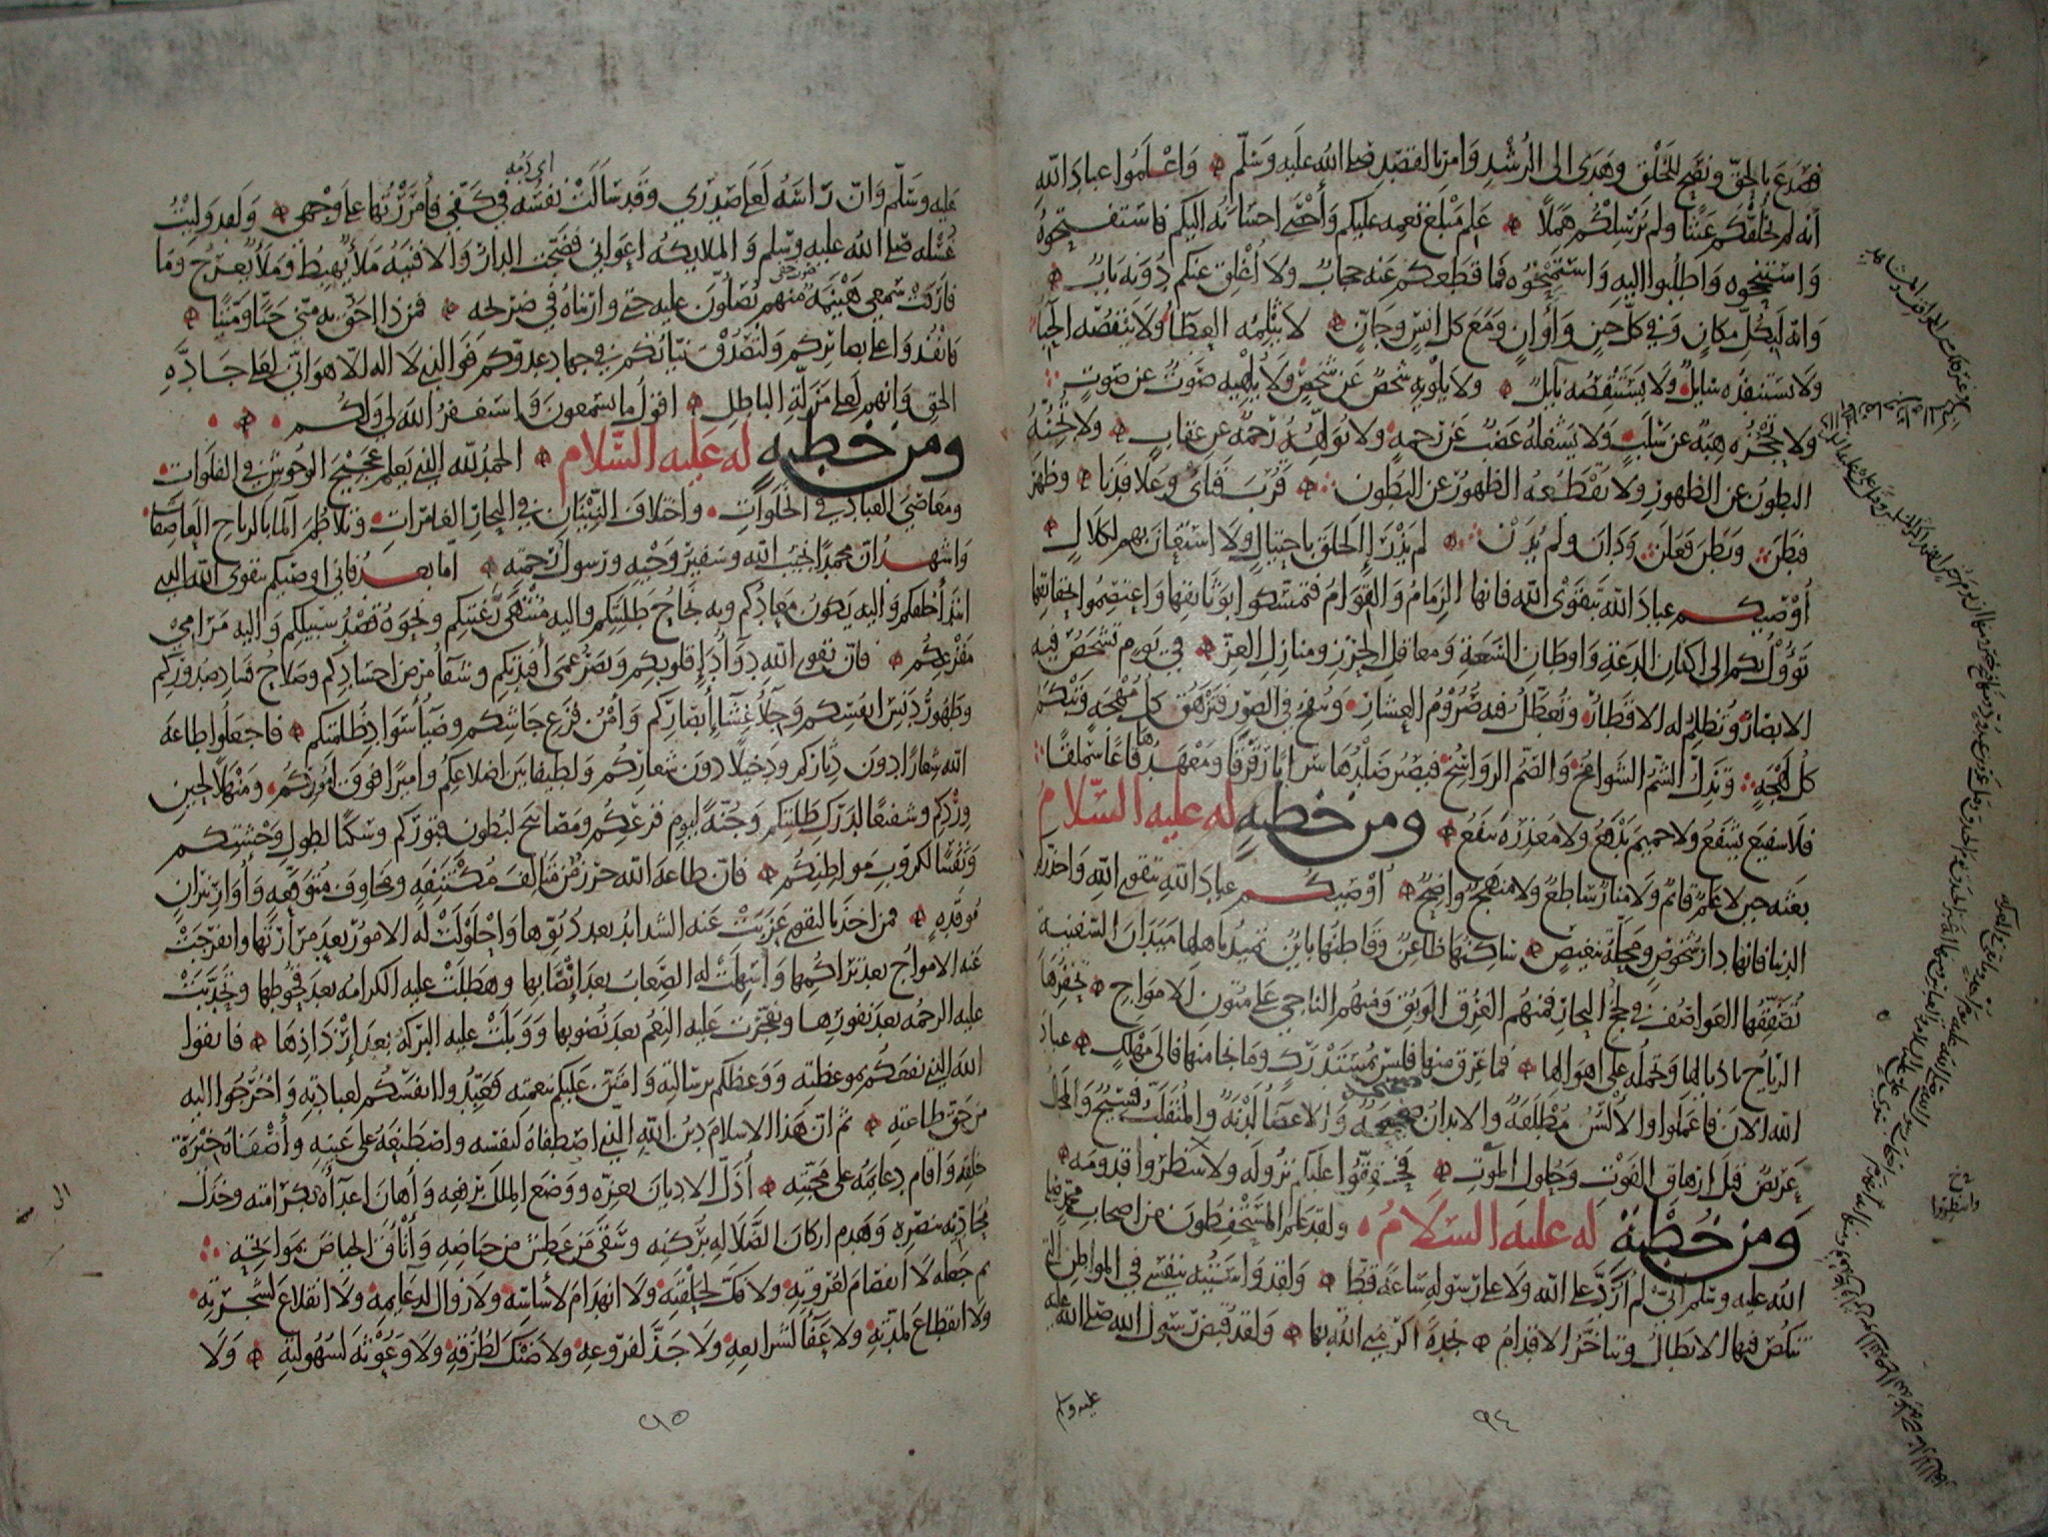 فصدع بالحق ونصح للخلق وهدى الى الرشد وامر بالقصد صلى الله عليه وسلم واعلموا عباد الله
انه لم يخلقكم عبثا ولم يرسلكم هملا علم مبلغ نعمه عليكم وأحصى احسانه اليكم فاستفتحوه
واستنجحوه واطلبوا اليه واستمنحوه فما قطعكم عنه حجاب ولا أغلق عنكم دونه باب
وانه لبكل مكان وفي كل حين وأوان ومع كل انس وجان لا يثلمه العطا ولا ينقصه الحبا
ولا يستنفده سايل ولا يستقصه نايل ولا يلويه شخص عن شخص ولا يلهيه صوت عن صوت
ولا تحجزه هبة عن سلب ولا يشغله غضب عن رحمة ولا تولهه رحمة عن عقاب ولا يجنه
البطون عن الظهور ولا يقطعه الظهور عن البطون قرب فنأى وعلا فدنا وظهر
فبطن وبطن فعلن ودان ولم يدن لم يذرإ الخلق باحتيال ولا استعان بهم لكلال
أوصيكم عباد الله بتقوى الله فانها الزمام والقوام فتمسكوا بوثائقها واعتصموا بحقائقها
تؤول بكم الى اكنان الدعة واوطان السعة ومعاقل الحرز ومنازل العز في يوم تشخص فيه
الابصار وتظلم له الاقطار وتعطل فيه صروم العشار وينفخ في الصور فتزهق كل مهجة وتبكم
كل لهجة وتذل الشم الشوامخ والصم الرواسخ فيصير صلدها سرابا رقرقا ومعهدها قاعا سملقا
فلا شفيع يشفع ولا حميم يدفع ولا معذرة تنفع ومن خطبة له عليه السلام
بعثه حين لا علم قائم ولا منار ساطع ولا منهج واضح أوصيكم عباد الله بتقوى الله واحذركم
الدنيا فانها دار شخوص ومحلة تنغيص ساكنها ظاعن وقاطنها بائن تميد باهلها ميدان السفينة
تصفقها العواصف في لجج البحار فمنهم الغرق الوبق ومنهم الناجي على متون الامواج تحفزها
الرياح باذيالها وتحمله على اهوالها فما غرق منها فليس بمستدرك وما نجا منها فالى مهلك عباد
الله الان فاعملوا والألسن مطلقة والابدان صحيحة والاعضا لدنة والمنقلب فسيح والمجال
عريض قبل ازهاق الفوت وحلول الموت فحققوا عليكم نزوله ولا تنتظروا قدومه
ومن خطبة له عليه السلام ولقد علم المستحفظون من اصحاب محمد صلى
الله عليه وسلم أني لم أرد على الله ولا على رسوله ساعة قط ولقد واسيته بنفسي في المواطن التي
تنكص فيها الابطال وتتأخر الاقدام نجدة اكرمني الله بها ولقد قبض رسول الله صلى الله عليه
عليه وسلم
٩٤
اي دمه
عليه وسلم وان رأسه لعلى صدري وقد سالت نفسه في كفي فأمررتها على وجهي ولقد وليت
غسله صلى الله عليه وسلم والملايكة اعواني فضجت الدار والافنية ملأ يهبط وملأ يعرج وما
صوت خفي
فارقت سمعي هينمة منهم يصلون عليه حتى واريناه في ضريحه فمن ذا احق به مني حيا وميتا
فانفذوا على بصائركم ولتصدق نياتكم في جهاد عدوكم فوالذي لا اله الا هو اني لعلى جادة
الحق وانهم لعلى مزلة الباطل اقول ما تسمعون واستغفر الله لي ولكم
ومن خطبة له عليه السلام الحمد لله الذي يعلم عجيج الوحوش في الفلوات
ومعاصي العباد في الخلوات واختلاف النينان في البحار الغامرات وتلاطم الما بالرياح العاصفات
واشهد ان محمدا نجيب الله وسفير وحيه ورسول رحمته اما بعد فاني اوصيكم بتقوى الله الذي
ابتدأ خلقكم واليه يكون معادكم وبه نجاح طلبتكم واليه منتهى رغبتكم ونحوه قصد سبيلكم واليه مرامي
مفزعكم فان تقوى الله دواء داء قلوبكم وبصر عمى أفئدتكم وشفاء مرض اجسادكم وصلاح فساد صدوركم
وطهور دنس انفسكم وجلاء غشاء أبصاركم وأمن فزع جاشكم وضياء سواد ظلمتكم فاجعلوا طاعة
الله شعارا دون دثاركم ودخيلا دون شعاركم ولطيفا بين اضلاعكم واميرا فوق اموركم ومنهلا لحين
وردكم وشفيعا لدرك طلبتكم وجنة ليوم فزعكم ومصابيح لبطون قبوركم وسكنا لطول وحشتكم
ونفسا لكرب مواطنكم فان طاعة الله حرز من متالف مكتنفة ومخاوف متوقعة وأوار نيران
موقدة فمن اخذ بالتقوى عزبت عنه الشدائد بعد دنوها واحلولت له الامور بعد مرارتها وانفرجت
عنه الامواج بعد تراكمها وأسهلت له الصعاب بعد إنصابها وهطلت عليه الكرامة بعد قحوطها وتحدبت
عليه الرحمة بعد نفورها وتفجرت عليه النعم بعد نضوبها ووبلت عليه البركة بعد إرذاذها فاتقوا
الله الذي نفعكم بموعظته ووعظكم برسالته وامتن عليكم بنعمته فعبدوا انفسكم لعبادته واخرجوا اليه
من حق طاعته ثم ان هذا الاسلام دين الله الذي اصطفاه لنفسه واصطنعه على عينه وأصفاه خيرة
خلقه واقام دعائمه على محبته أذل الاديان بعزه ووضع الملل برفعه وأهان اعداءه بكرامته وخذل
محاديه بنصره وهدم اركان الضلالة بركنه وسقى من عطش من حياضه وأتأق الحياض بمواتحه
ثم جعله لا انفصام لعروته ولا فك لحلقته ولا انهدام لأساسه ولا زوال لدعايمه ولا انقلاع لشجرته
ولا انقطاع لمدته ولا عفاء لشرايعه ولا جذ لفروعه ولا ضنك لطرقه ولا وعوثة لسهولته ولا
٩٥